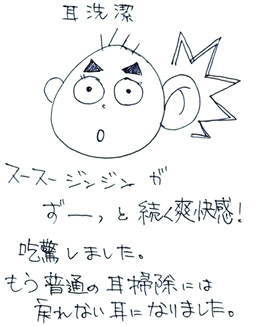 耳洗潔
スースージンジンが
ずーっと続く爽快感!
吃驚しました。
もう普通の耳掃除には
戻れない耳になりました。